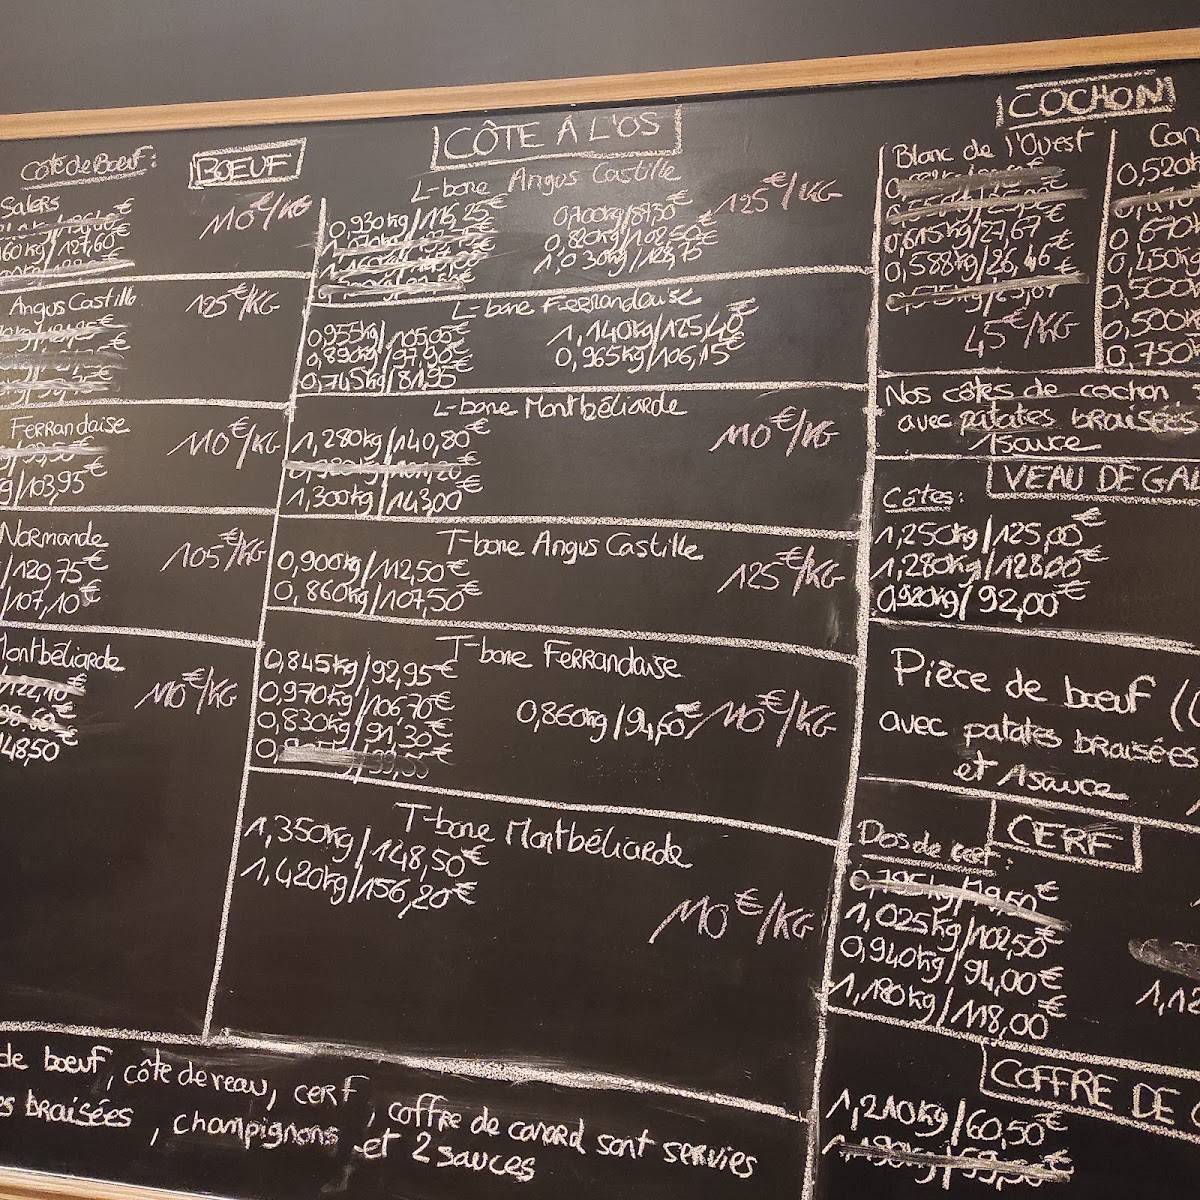 Côte de Boeuf:
BOEUF
Salers
110€/KG
60kg/127,60€
Angus Castille
125€/KG
Ferrandaise
110€/KG
g/103,95€
Normande
105€/KG
/120,75€
/107,10€
Montbéliarde
110€/KG
148,50€
CÔTE À L'OS
L-bone Angus Castille
125€/KG
0,930kg/116,25€ 0,700kg/87,50€
0,820kg/102,50€
1,030kg/128,75€
L-bone Ferrandaise
0,955kg/105,05€ 1,140kg/125,40€
0,890kg/97,90€ 0,965kg/106,15€
0,745kg/81,95€
L-bone Montbéliarde
110€/KG
1,280kg/140,80€
1,300kg/143,00€
T-bone Angus Castille
125€/KG
0,900kg/112,50€
0,860kg/107,50€
T-bone Ferrandaise
0,845kg/92,95€
0,970kg/106,70€
0,830kg/91,30€
0,860kg/94,60€ 110€/KG
T-bone Montbéliarde
1,350kg/148,50€
1,420kg/156,20€
110€/KG
COCHON
Blanc de l'Ouest
0,615kg/27,67€
0,588kg/26,46€
45€/KG
0,520k
0,670k
0,430kg
0,500k
0,500k
0,750k
Nos côtes de cochon
avec patates braisées
1 sauce
VEAU DE GAL
Côtes:
1,250kg/125,00€
1,280kg/128,00€
0,920kg/92,00€
Pièce de boeuf (
avec patates braisées
et 1 sauce
CERF
Dos de cerf:
0,795kg/79,50€
1,025kg/102,50€
0,940kg/94,00€
1,180kg/118,00€
1,12
COFFRE DE
1,210kg/60,50€
de boeuf, côte de veau, cerf, coffre de canard sont servies
es braisées, champignons et 2 sauces